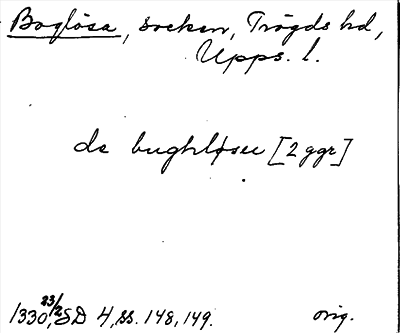 Boglösa, socken, Trögds hd,
Upps. l.
de bughløseu [2 ggr]
1330 23/2, SD 4, ss. 148, 149. orig.